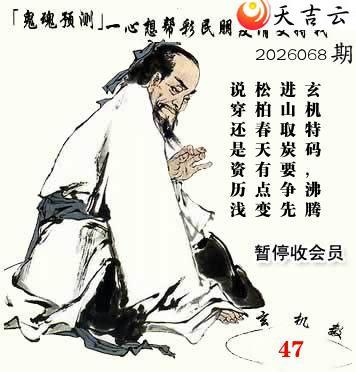 天吉云
「鬼魂预测」一心想帮彩民朋友
2026068期
玄机特码，沸腾
进山取炭要争先
松柏春天有点变
说穿还是资历浅
暂停收会员
玄机
47